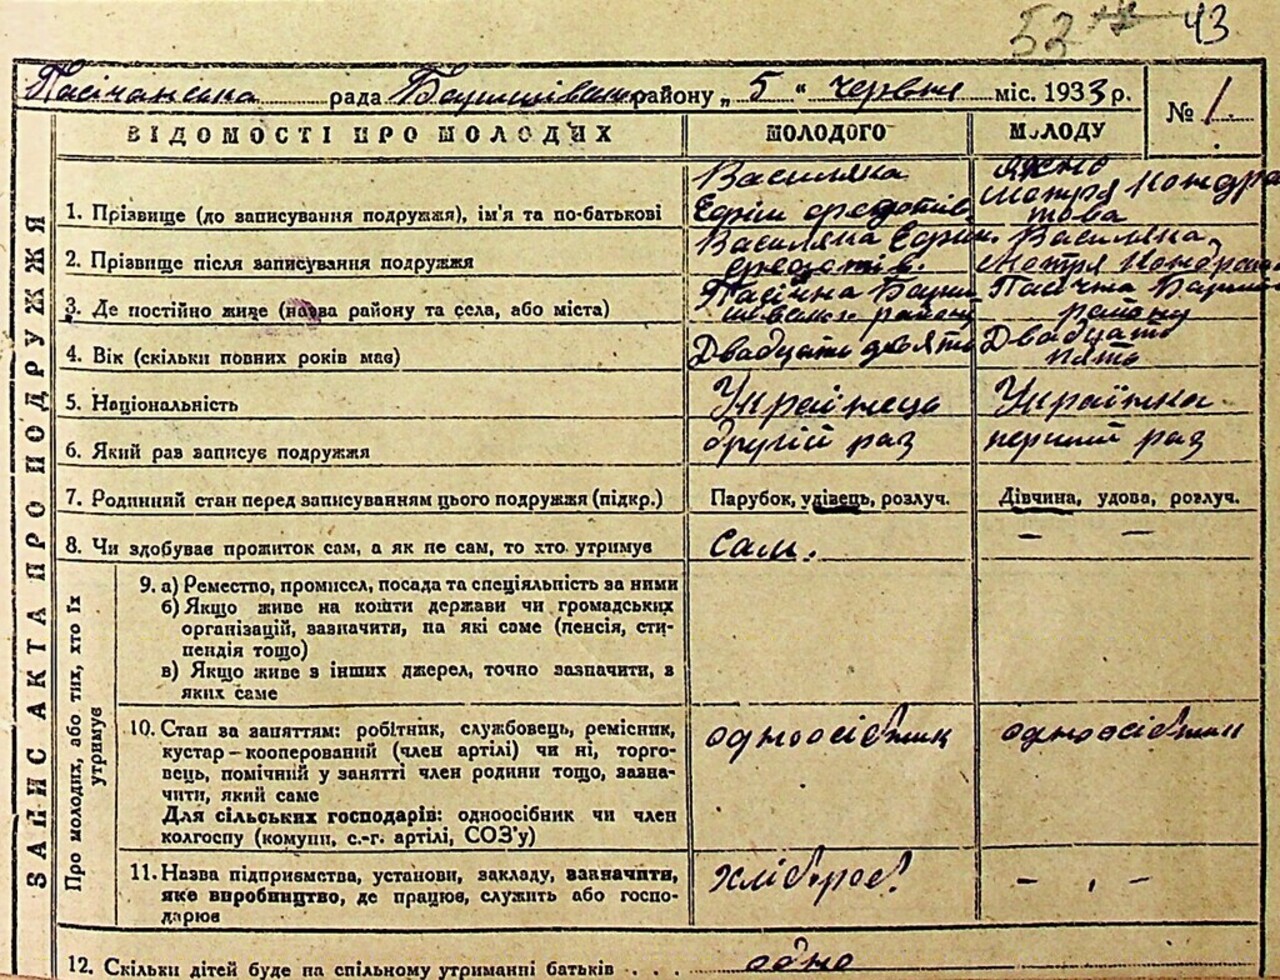 52 43
Пасічанська рада Баришівськ району „ 5 “ червня міс. 1933 р.
№ 1
ЗАПИС АКТА ПРО ПОДРУЖЖЯ
ВІДОМОСТІ ПРО МОЛОДИХ МОЛОДОГО МОЛОДУ
1. Прізвище (до записування подружжя), ім'я та по-батькові
Василяка
Єфрім Федотів.
Яхно
Мотря Кондра
това
2. Прізвище після записування подружжя
Василяка Єфрим.
Федотів.
Василяка
Мотря Кондрат
3. Де постійно живе (назва району та села, або міста)
Пасічна
району
Пасічна
району
4. Вік (скільки повних років має)
Двадцать девять
Двадцать
пять
5. Національність Українець Українка
6. Який раз записує подружжя другій раз перший раз
7. Родинний стан перед записуванням цього подружжя (підкр.) Парубок, удівець, розлуч. Дівчина, удова, розлуч.
8. Чи здобуває прожиток сам, а як не сам, то хто утримує сам. – –
Про молодих, або тих, хто їх
утримує
9. а) Ремество, промисел, посада та спеціяльність за ними
б) Якщо живе на кошти держави чи громадських
організацій, зазначити, на які саме (пенсія, сти-
пендія тощо)
в) Якщо живе з інших джерел, точно зазначити, з
яких саме
10. Стан за заняттям: робітник, службовець, ремісник,
кустар – кооперований (член артілі) чи ні, торго-
вець, помічний у занятті член родини тощо, зазна-
чити, який саме
Для сільських господарів: одноосібник чи член
колгоспу (комуни, с.-г. артілі, СОЗ'у)
одноосібник одноосібник
11. Назва підприємства, установи, закладу, зазначити,
яке виробництво, де працює, служить або госпо-
дарює
хлібороб – –
12. Скільки дітей буде на спільному утриманні батьків . . . одно